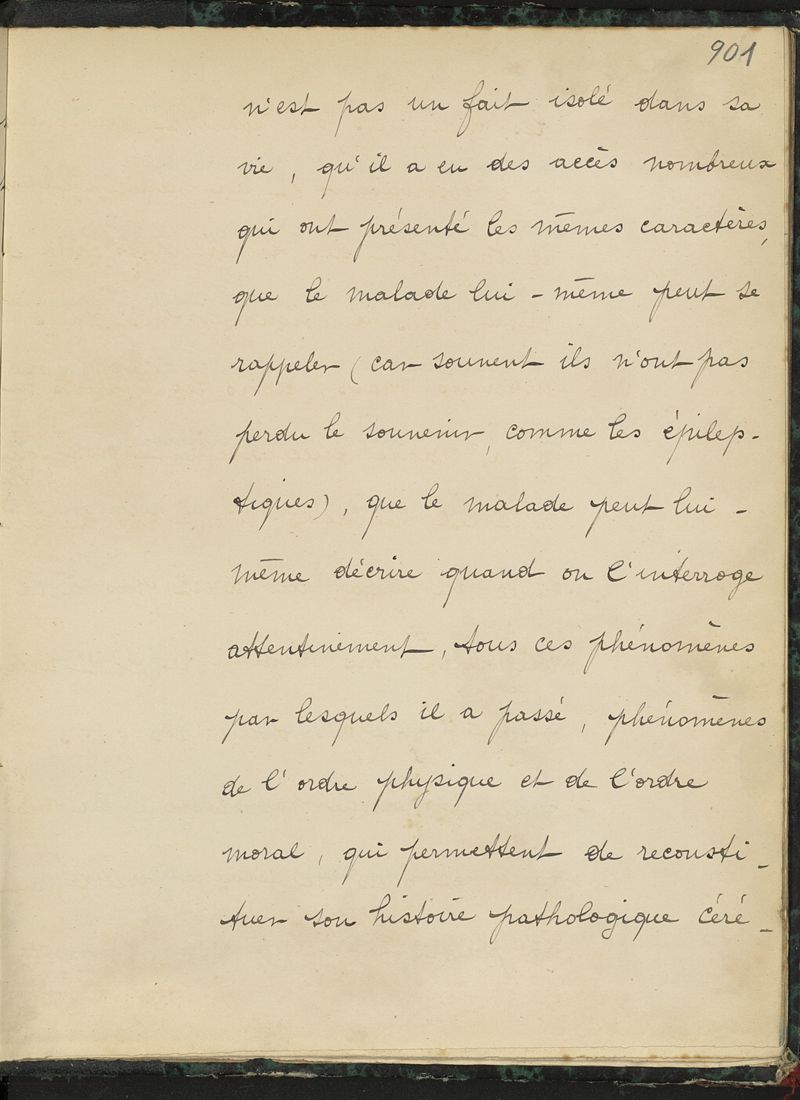 901
n'est pas un fait isolé dans sa
vie, qu'il a eu des accès nombreux
qui ont présenté les mêmes caractères,
que le malade lui-même peut se
rappeler (car souvent ils n'ont pas
perdu le souvenir, comme les épilep-
tiques), que le malade peut lui-
même décrire quand on l'interroge
attentivement, tous ces phénomènes
par lesquels il a passé, phénomènes
de l'ordre physique et de l'ordre
moral, qui permettent de reconsti-
tuer son histoire pathologique céré-